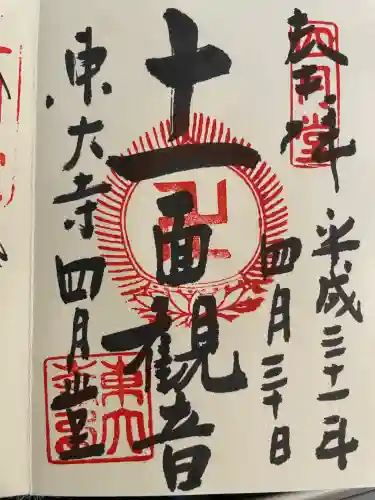 奉拝
平成三十一年
四月三十日
十一面観音
東大寺 四月堂
四月堂
卍
東大